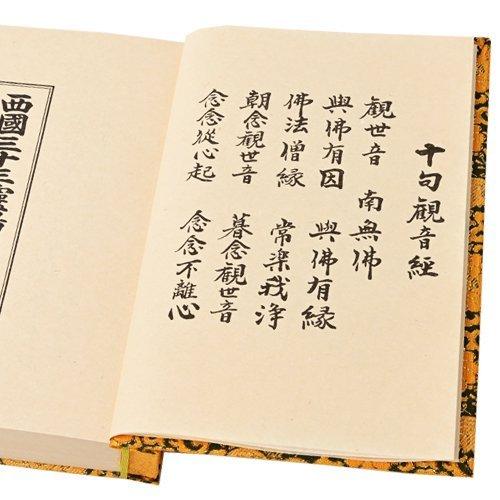 十句觀音經
觀世音 南無佛
與佛有因 與佛有緣
佛法僧緣 常楽我浄
朝念觀世音 暮念觀世音
念念從心起 念念不離心
西國三十三